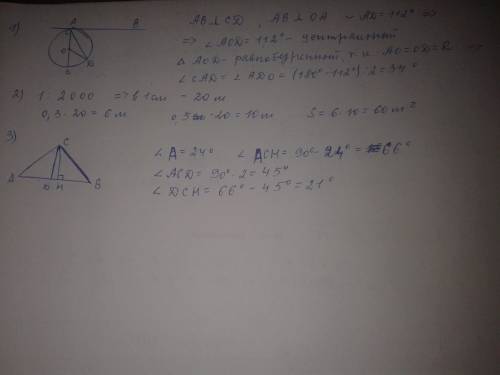 1) A B
O
C D
AB ⊥ CD, AB ⊥ OA ∪ AD = 112° =>
=> ∠ AOD = 112° - центральный
Δ AOD - равнобедренный, т.к. AO = OD = R =>
∠ CAD = ∠ ADO = (180° - 112°) : 2 = 34°
2) 1 : 2000 => в 1 см - 20 м
0,3 · 20 = 6 м 0,5 · 20 = 10 м S = 6 · 10 = 60 м²
3) C
A D H B
∠ A = 24° ∠ ACH = 90° - 24° = 66°
∠ ACD = 90° : 2 = 45°
∠ DCH = 66° - 45° = 21°